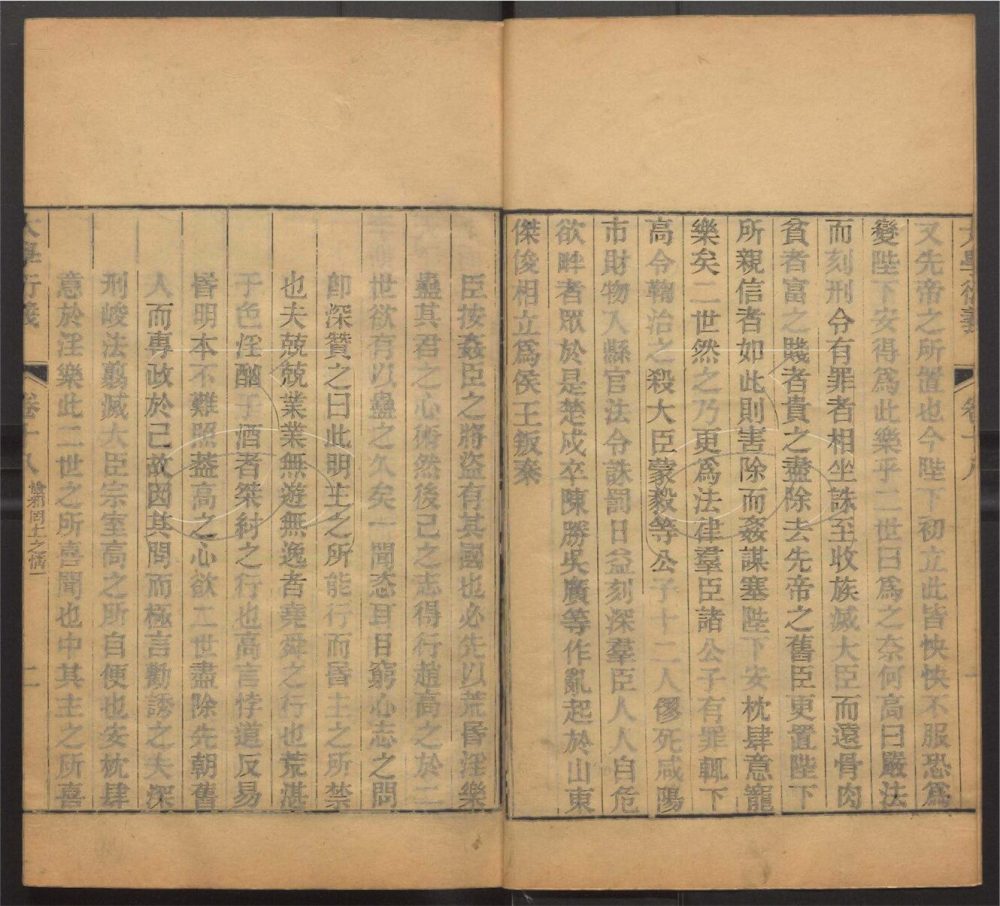 大學衍義 卷十八 一
又先帝之所置也今陛下初立此皆怏怏不服恐爲
變陛下安得爲此樂乎二世曰爲之奈何高曰嚴法
而刻刑令有罪者相坐誅至收族滅大臣而遠骨肉
貧者富之賤者貴之盡除去先帝之舊臣更置陛下
所親信者如此則害除而姦謀塞陛下安枕肆意寵
樂矣二世然之乃更爲法律羣臣諸公子有罪輒下
高令鞫治之殺大臣蒙毅等公子十二人僇死咸陽
市財物入縣官法令誅罰日益刻深羣臣人人自危
欲畔者眾於是楚戍卒陳勝吳廣等作亂起於山東
傑俊相立爲侯王叛秦
臣按姦臣之將盜有其國也必先以荒昏淫樂
蠱其君之心術然後己之志得行趙高之於二
世欲有以蠱之久矣一聞恣耳目窮心志之問
卽深贊之曰此明主之所能行而昏主之所禁
也夫兢兢業業無遊無逸者堯舜之行也荒湛
于色淫酗于酒者桀紂之行也高言悖道反易
昏明本不難照葢高之心欲二世盡除先朝舊
人而專政於己故因其問而極言勸誘之夫深
刑峻法翦滅大臣宗室高之所自便也安枕肆
意於淫樂此二世之所喜聞也中其主之所喜
大學衍義 卷十八 憸邪罔上之情一 二